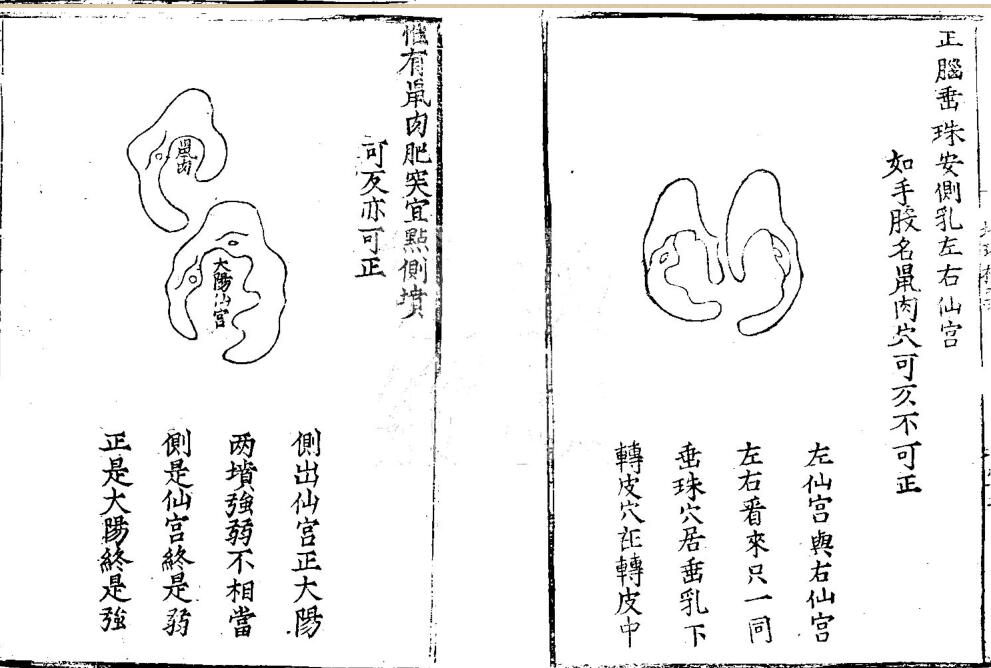 正腦垂珠安側乳左右仙宫
如手股名鼠肉穴可仄不可正
左仙宫與右仙宫
左右看來只一同
垂珠穴居垂乳下
轉皮穴訨轉皮中
惟有鼠肉肥突宜點側墳
可仄亦可正
鼠肉
大陽仙宫
側出仙宫正大陽
两墳強弱不相當
側是仙宫終是弱
正是大陽終是強